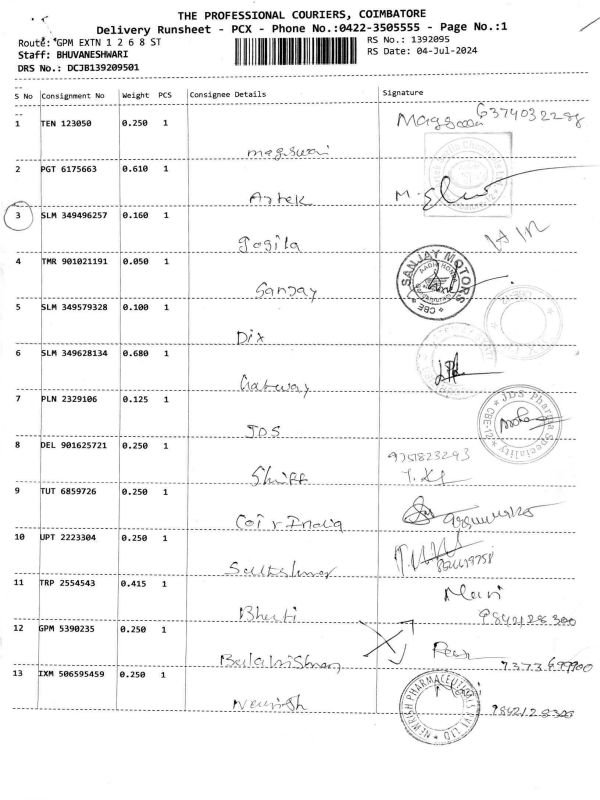 THE PROFESSIONAL COURIERS, COIMBATORE
Delivery Runsheet - PCX - Phone No.:0422-3505555 - Page No.:1
Route: GPM EXTN 1 2 6 8 ST RS No.: 1392095
Staff: BHUVANESHWARI RS Date: 04-Jul-2024
DRS No.: DCJB139209501
S No Consignment No Weight PCS Consignee Details Signature
1 TEN 123050 0.250 1 6374032298
2 PGT 6175663 0.610 1
Artek
3 SLM 349496257 0.160 1
4 TMR 901021191 0.050 1 SANJAY MOTORS
Sanjay CBE
5 SLM 349579328 0.100 1
Dix
6 SLM 349628134 0.680 1
Gateway
7 PLN 2329106 0.125 1 JDS Pharma Speciality
JDS CBE-12
8 DEL 901625721 0.250 1 9751823293
9 TUT 6859726 0.250 1
Coir India
10 UPT 2223304 0.250 1
11 TRP 2554543 0.415 1 Mani
Bharti 9842128300
12 GPM 5390235 0.250 1
7373699900
13 IXM 506595459 0.250 1 NEWRISH PHARMACEUTICALS PVT LTD
Newrish 9842128300